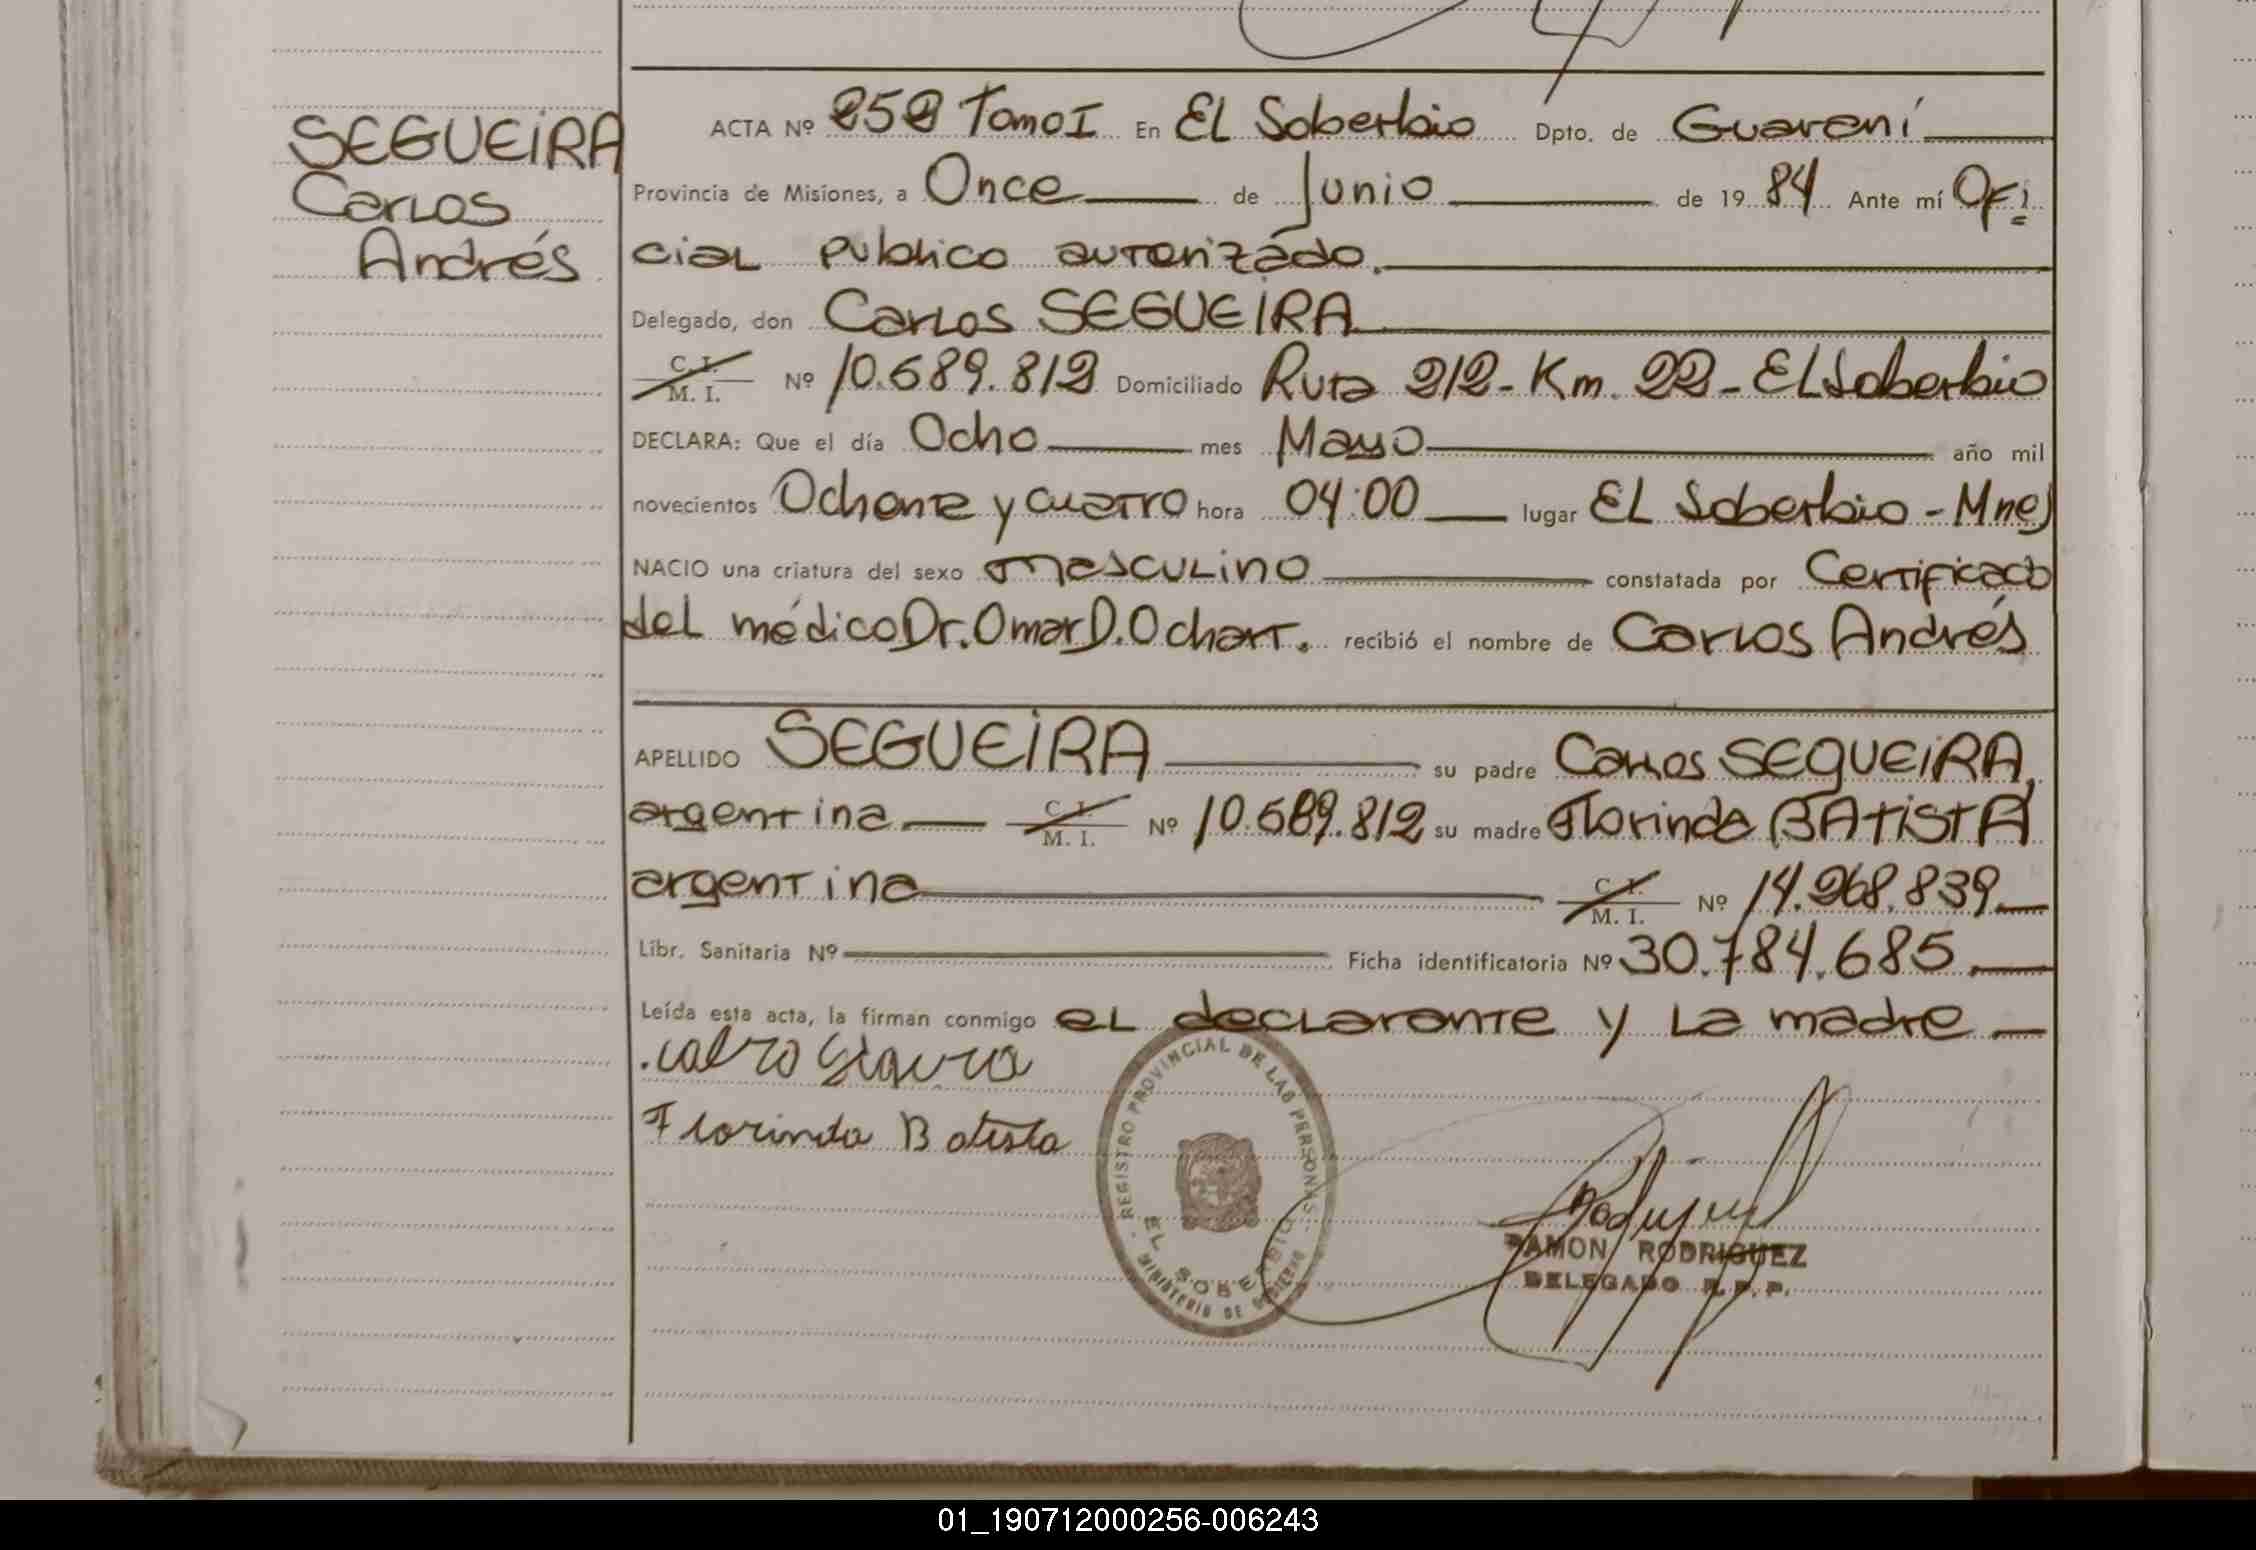 SEGUEIRA
Carlos
Andrés
ACTA Nº 252 Tomo I En EL Soberbio Dpto. de Guaraní
Provincia de Misiones, a Once de Junio de 19 84 Ante mí Ofi
cial publico autorizado.
Delegado, don Carlos SEGUEIRA
C. I.
M. I. Nº 10.689.812 Domiciliado Ruta 212 - Km. 22 - EL Soberbio
DECLARA: Que el día Ocho mes Mayo año mil
novecientos Ochenta y cuatro hora 04:00 lugar EL Soberbio - Mnes
NACIO una criatura del sexo masculino constatada por Certificado
del médico Dr. Omar D. Ochart. recibió el nombre de Carlos Andrés
APELLIDO SEGUEIRA su padre Carlos SEQUEIRA,
argentina C. I. M. I. Nº 10.689.812 su madre Florinda BATISTA
argentina C. I. M. I. Nº 14.268.839
Libr. Sanitaria Nº Ficha identificatoria Nº 30.784.685.
Leída esta acta, la firman conmigo el declarante y la madre
Florinda Batista
REGISTRO PROVINCIAL DE LAS PERSONAS
EL SOBERBIO
MINISTERIO DE GOBIERNO
RAMON RODRIGUEZ
DELEGADO R. P. P.
01_190712000256-006243